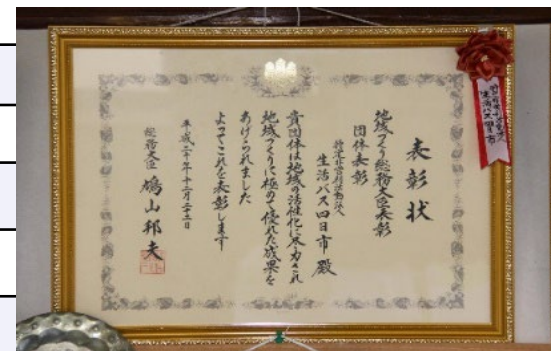 表彰状
地域づくり総務大臣表彰
団体表彰
特定非営利活動法人
生活バス四日市 殿
貴団体は地域の活性化に尽力され
地域づくりに極めて優れた成果を
あげられました
よってこれを表彰します
平成二十年十二月二十二日
総務大臣 鳩山邦夫
生活バス四日市